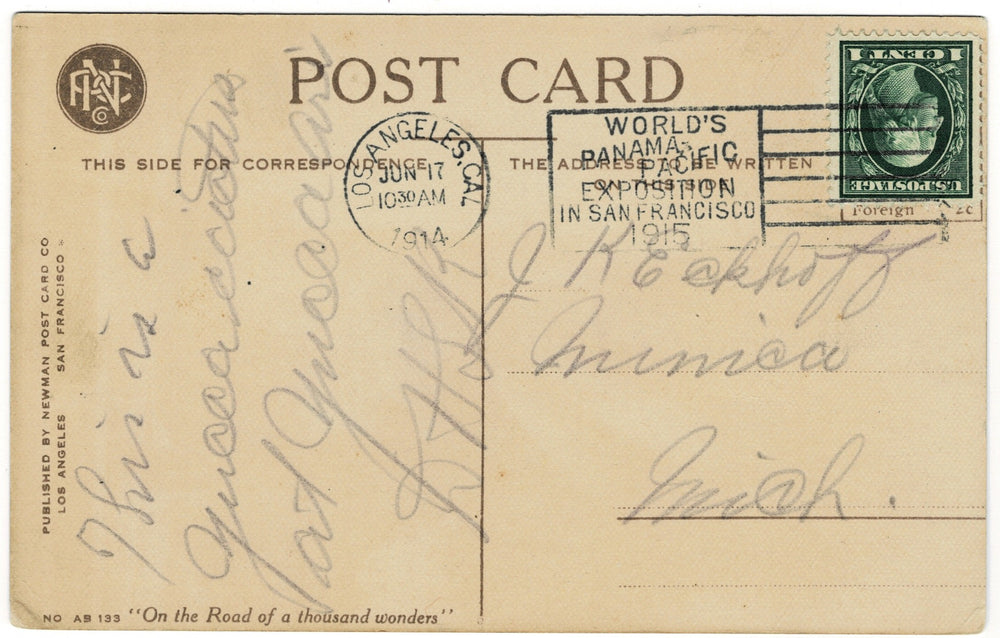 POST CARD
THIS SIDE FOR CORRESPONDENCE
THE ADDRESS TO BE WRITTEN
ON THIS SIDE
LOS ANGELES, CAL
JUN 17
10 30 AM
1914
WORLD'S
PANAMA-
PACIFIC
EXPOSITION
IN SAN FRANCISCO
1915
1 CENT 1
U.S. POSTAGE
Foreign 2c
PUBLISHED BY NEWMAN POST CARD CO
LOS ANGELES SAN FRANCISCO
This is a
at
J K Eckhoff
Munica
Mich.
NO AB 133 "On the Road of a thousand wonders"